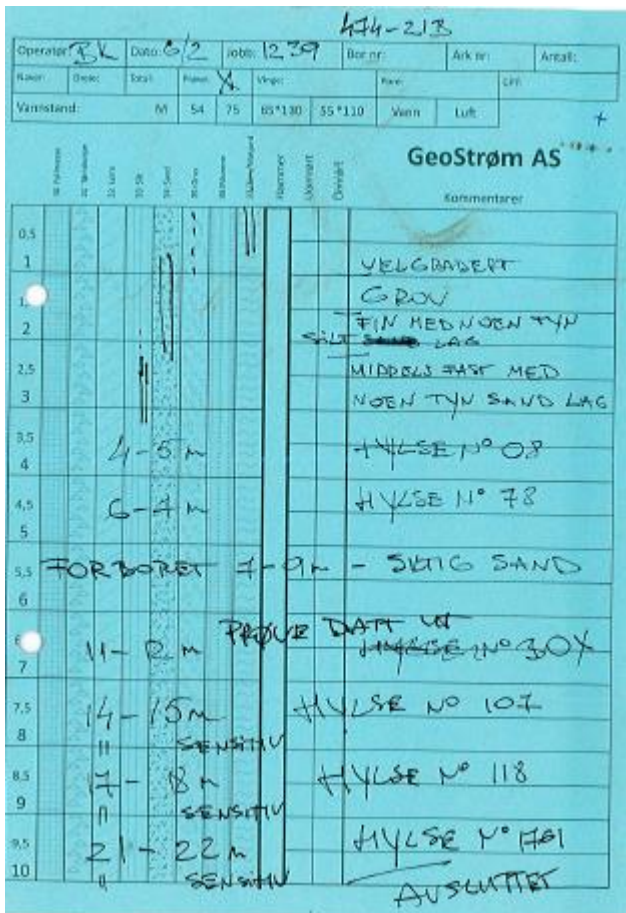 474-21B
Operatør: BK Dato: 6/2 Jobb: 1239 Bor nr: Ark nr: Antall:
Total: X Vinge:
Vannstand: M 54 75 65*130 55*110 Vann Luft
+
GeoStrøm AS
Hammer Kommentarer
0,5
1 VELGRADERT
GROV
FIN MED NOEN TYN
2 SILT LAG
2,5 MIDDELS FAST MED
3 NOEN TYN SAND LAG
3,5 4-5 m HYLSE Nº 08
4
4,5 6-7 m HYLSE Nº 78
5
5,5 FORBORET 7-9m - SILTIG SAND
6
PRØVE DATT UT
11-12 m HYLSE Nº 30X
7
7,5 14-15m HYLSE Nº 107
8 " SENSITIV
8,5 17-18 m HYLSE Nº 118
9 " SENSITIV
9,5 21-22 m HYLSE Nº 1761
10 " SENSITIV AVSLUTTET